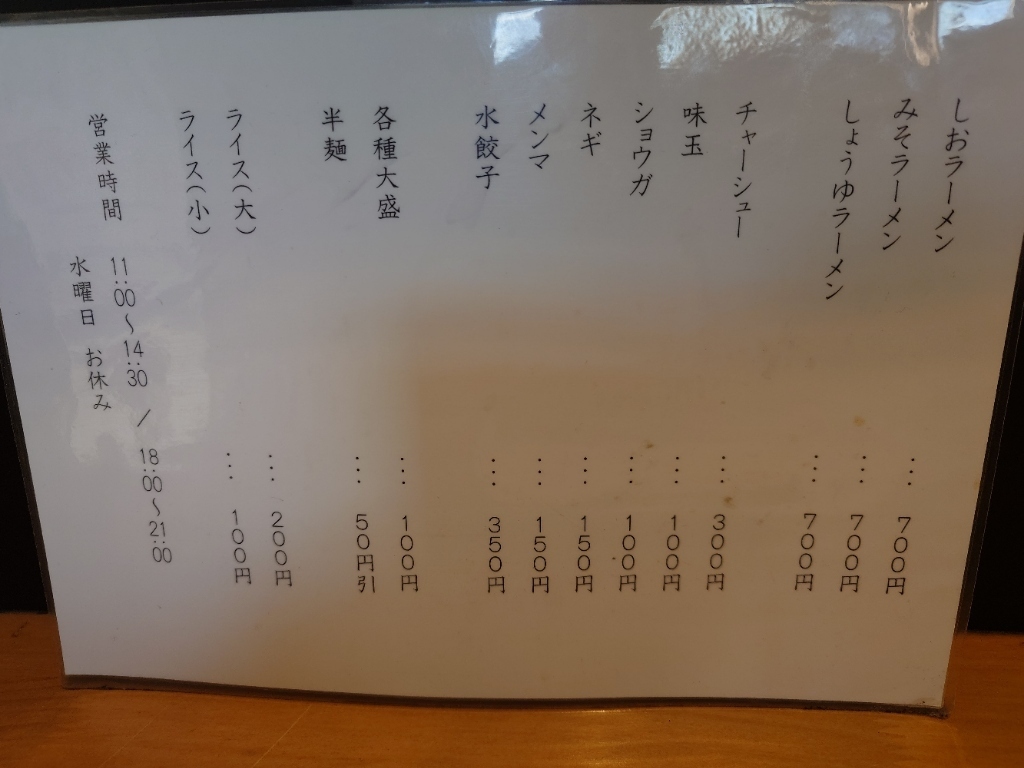 しおラーメン … 700円
みそラーメン … 700円
しょうゆラーメン … 700円
チャーシュー … 300円
味玉 … 100円
ショウガ … 100円
ネギ … 150円
メンマ … 150円
水餃子 … 350円
各種大盛 … 100円
半麺 … 50円引
ライス(大) … 200円
ライス(小) … 100円
営業時間 11:00～14:30 / 18:00～21:00
水曜日 お休み